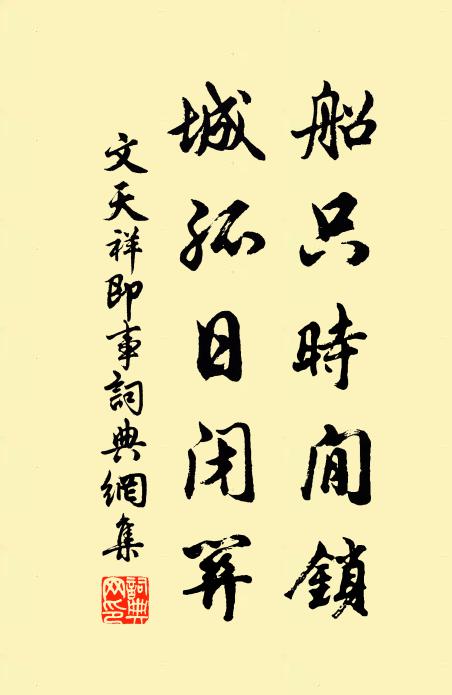 船只時間鎖
城孤日閉關
文天祥即事詞典網集
詞典
网印